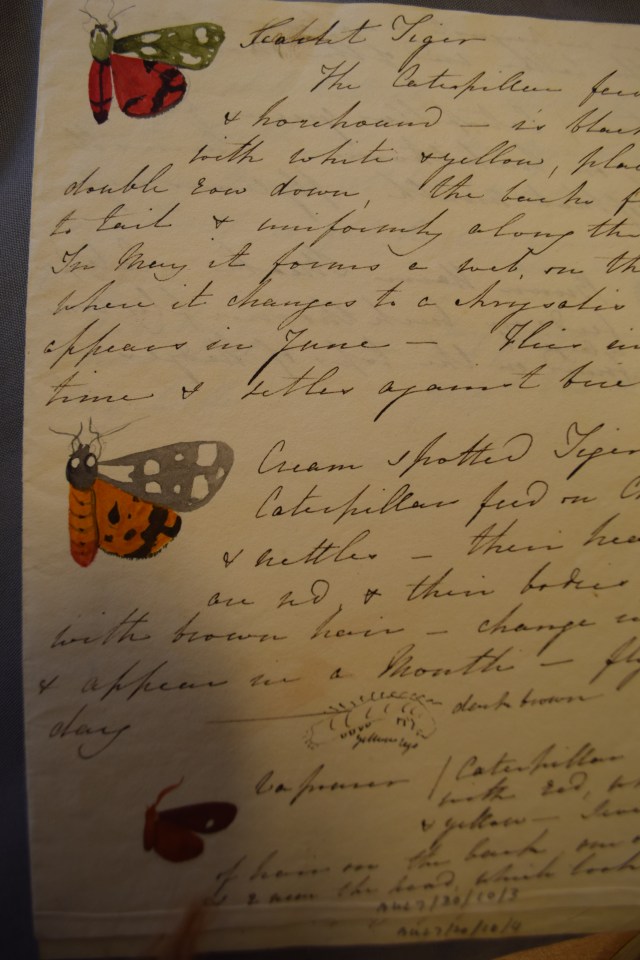 Scarlet Tiger
The Caterpillar feed
& horehound — is black
with white & yellow, pla
double row down, the back f
to tail & uniformly along the
In May it forms a web, on th
where it changes to a chrysalis
appears in June — Flies in
time & settles against
Cream spotted Tiger
Caterpillar feed on C
& nettles — their hea
are red, & their bodies
with brown hair — change
& appear in a Month — fly
day
dark brown
yellow legs
Vapourer / Caterpillar
with red, w
& yellow —
of hair on the back one
& 2 near the head, which look